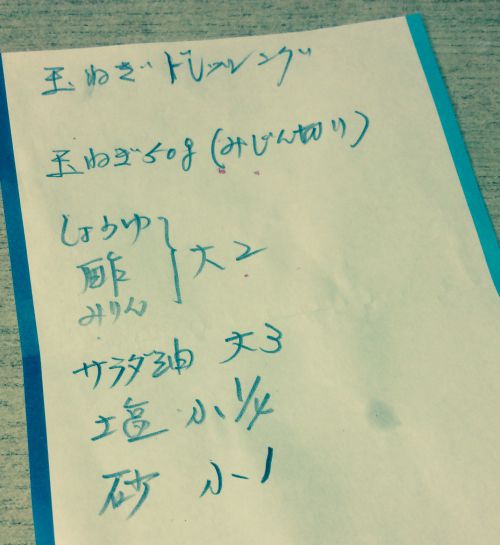 玉ねぎドレッシング
玉ねぎ50g(みじん切り)
しょうゆ
酢
みりん
大2
サラダ油 大3
塩 小1/4
砂 小1